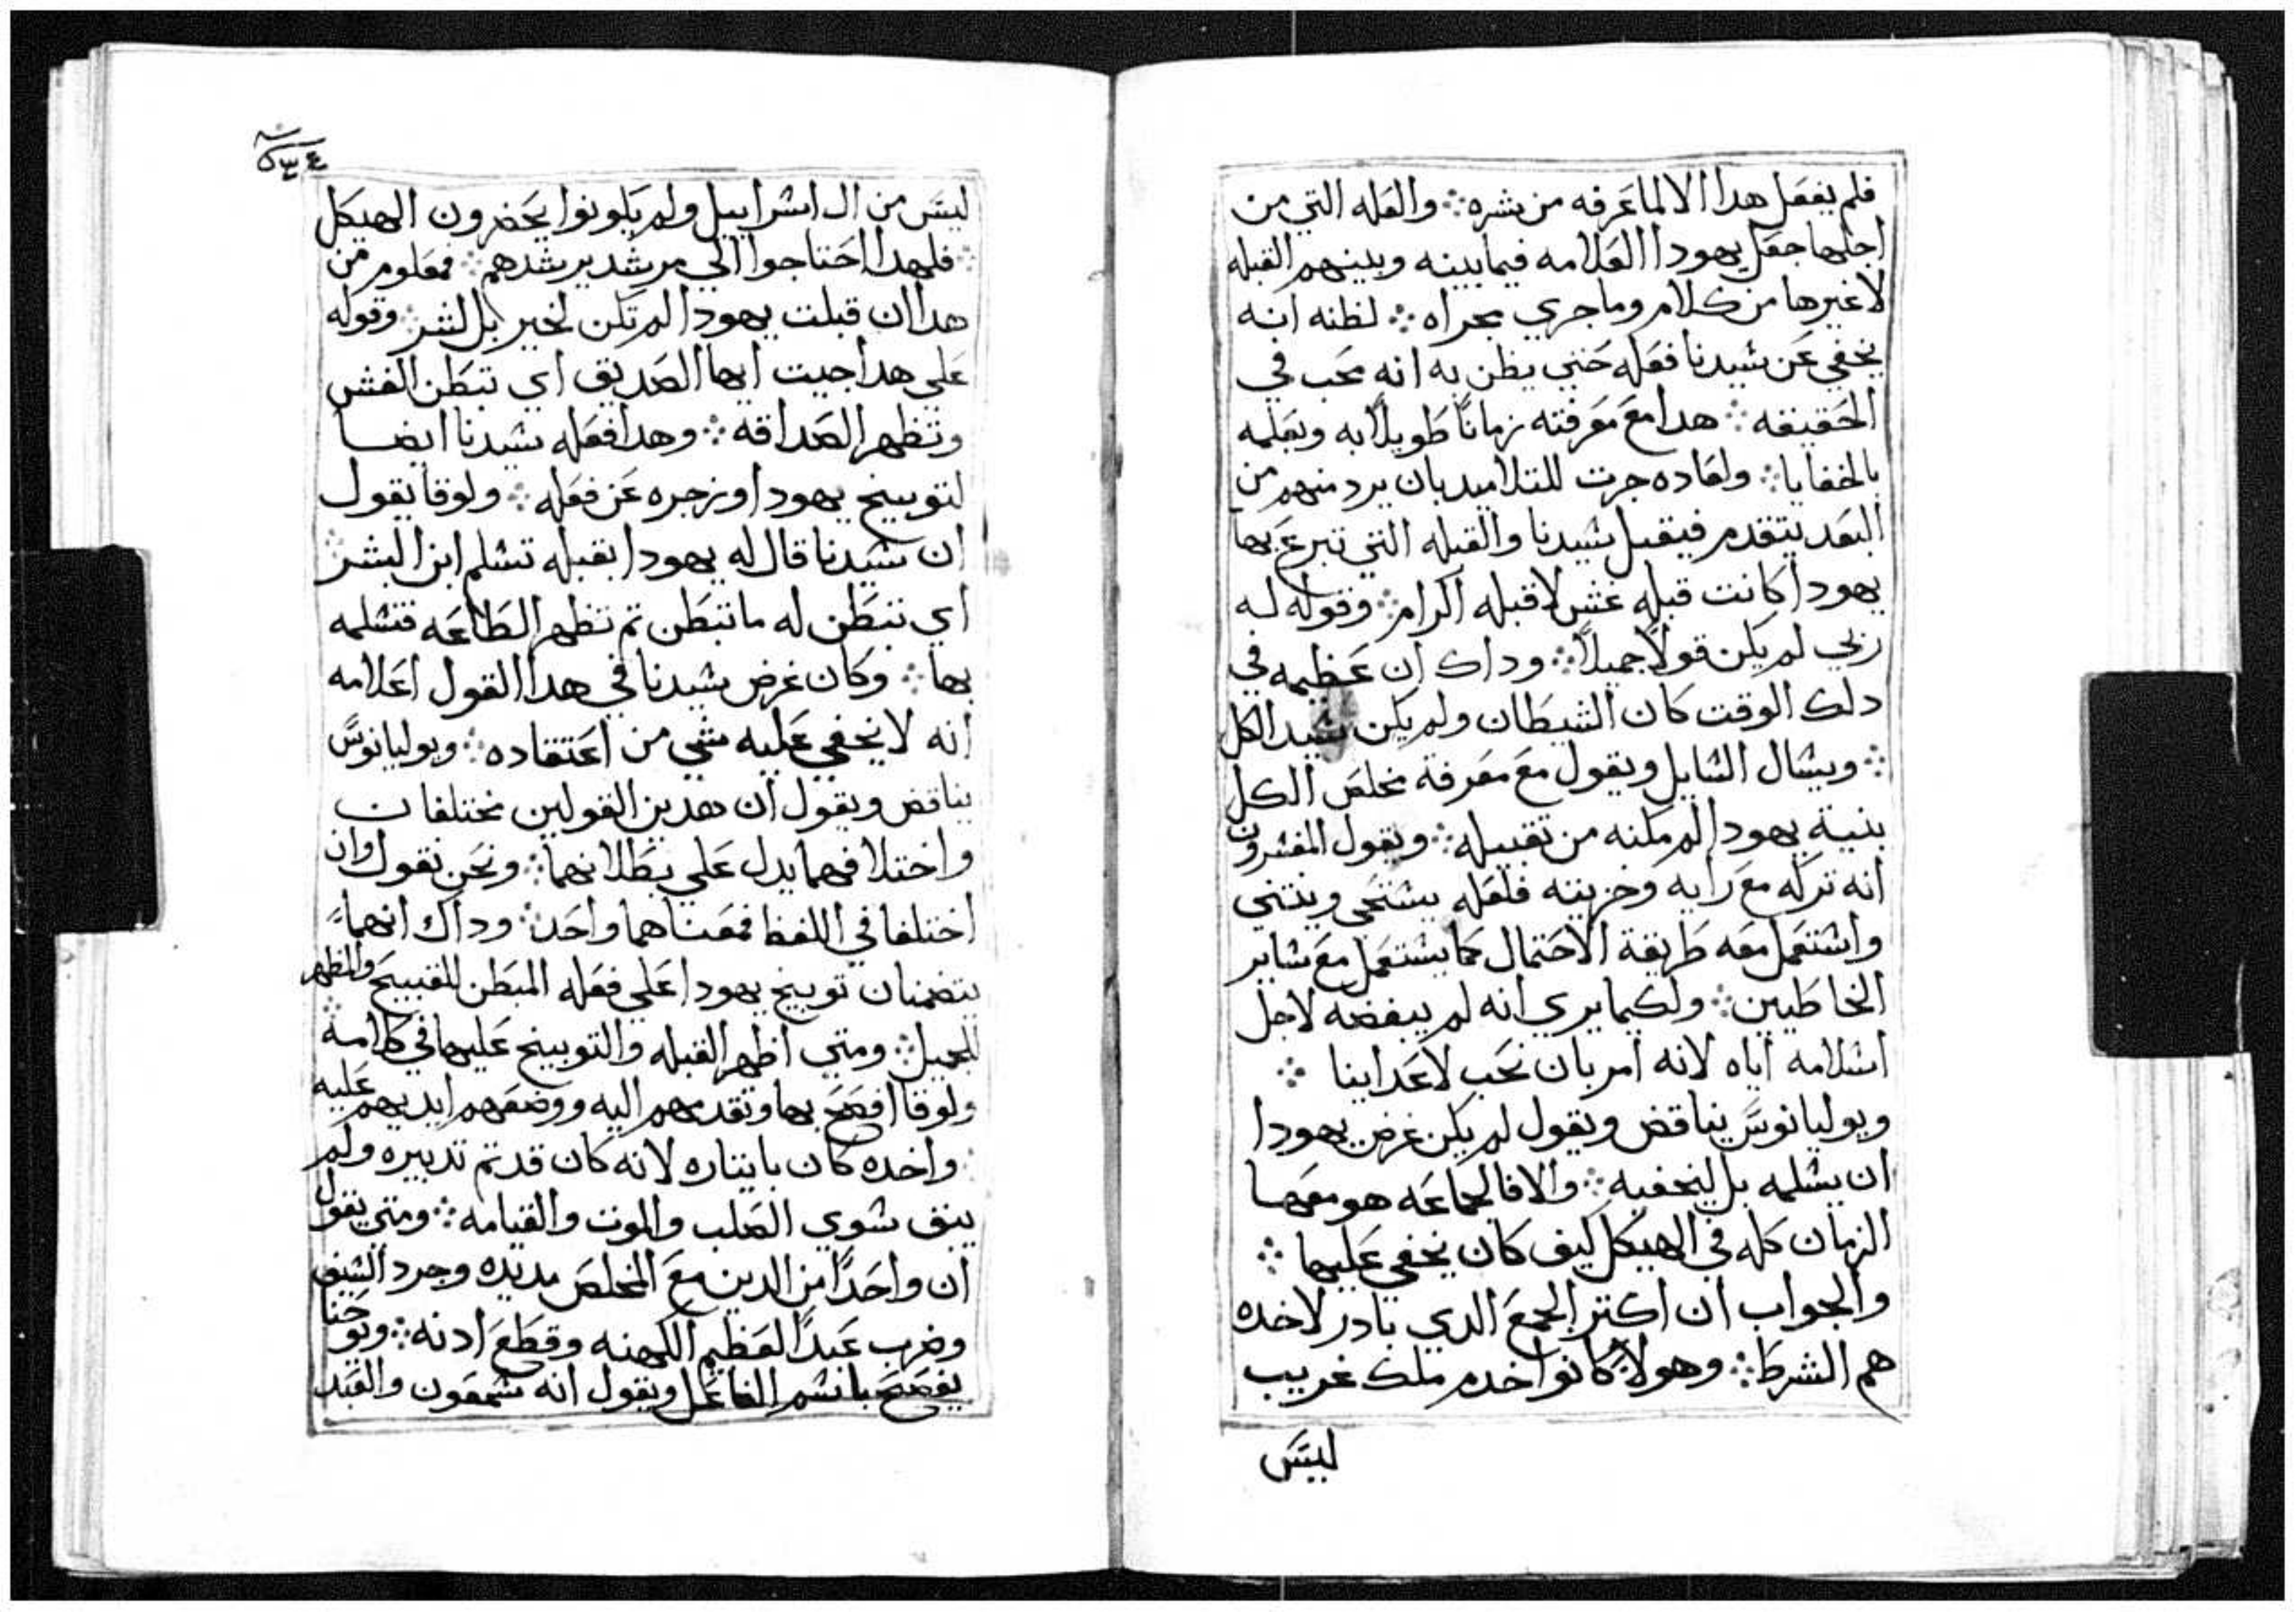 فلم يفعل هدا الا لما عرفه من شره ۞ والعله التي من
اجلها جعل يهودا العلامه فيما بينه وبينهم القبله
لا غيرها من كلام وما جري مجراه ۞ لظنه انه
يخفي عن سيدنا فعله حتي يظن به انه محب في
الحقيقه ۞ هدا مع معرفته زمانًا طويلًا به وبعلمه
بالخفايا ۞ ولعاده جرت للتلاميد بان يرد منهم من
البعد يتقدم فيقبل سيدنا والقبله التي تبرع بها
يهودا كانت قبله غش لا قبله اكرام ۞ وقوله له
ربي لم يكن قولًا جميلًا ۞ وداك ان عظيمه في
دلك الوقت كان الشيطان ولم يكن سيد الكل
۞ ويسال السايل ويقول مع معرفة مخلص الكل
بنية يهودا لم مكنه من تقبيله ۞ ويقول المفسرون
انه تركه مع رايه وخزيته فلعله يستحي وينتني
واستعمل معه طريقة الاحتمال كما يستعمل مع ساير
الخاطيين ۞ ولكيما يري انه لم يبغضه لاجل
اسلامه اياه لانه امر بان نحب لاعداينا ۞
ويوليانوس يناقض ويقول لم يكن غرض يهودا
ان يسلمه بل ليخفيه ۞ والا فالجماعه هو معها
الزمان كله في الهيكل ليف كان يخفي عليها ۞
والجواب ان اكتر الجمع الدي بادر لاخده
هم الشرط ۞ وهولا كانوا خدم ملك غريب
ليس
٥٣٤
ليس من ال اسراييل ولم يكونوا يحضرون الهيكل
۞ فلهدا احتاجوا الي مرشد يرشدهم ۞ فمعلوم من
هدا ان قبلت يهودا لم تكن لخير بل لشر ۞ وقوله
علي هدا جيت ايها الصديق اي تبطن الغش
وتظهر الصداقه ۞ وهدا فعله سيدنا ايضا
لتوبيخ يهودا وزجره عن فعله ۞ ولوقا يقول
ان سيدنا قال له يهودا بقبله تسلم ابن البشر ۞
اي تبطن له ما تبطن تم تظهر الطاعه فتسلمه
بها ۞ وكان غرض سيدنا في هدا القول اعلامه
انه لا يخفي عليه شي من اعتقاده ۞ ويوليانوس
يناقض ويقول ان هدين القولين مختلفان
واختلافهما يدل علي بطلانهما ۞ ونحن نقول وان
اختلفا في اللفظ فمعناهما واحد ۞ وداك انهما
يتضمنان توبيخ يهودا علي فعله المبطن للقبيح والمظهر
للجميل ۞ ومتي اظهر القبله والتوبيخ عليها في كلامه ۞
ولوقا افصح بها وتقدمهم اليه ووضعهم ايديهم عليه
۞ واخده كان بايتاره لانه كان قد تم تدبيره ولم
يبق سوي الصلب والموت والقيامه ۞ ومتي يقول
ان واحدًا من الدين مع المخلص مد يده وجرد السيف
وضرب عبدًا لعظيم الكهنه وقطع ادنه ۞ ويوحنا
يفصح باسم الفاعل ويقول انه شمعون والعبد